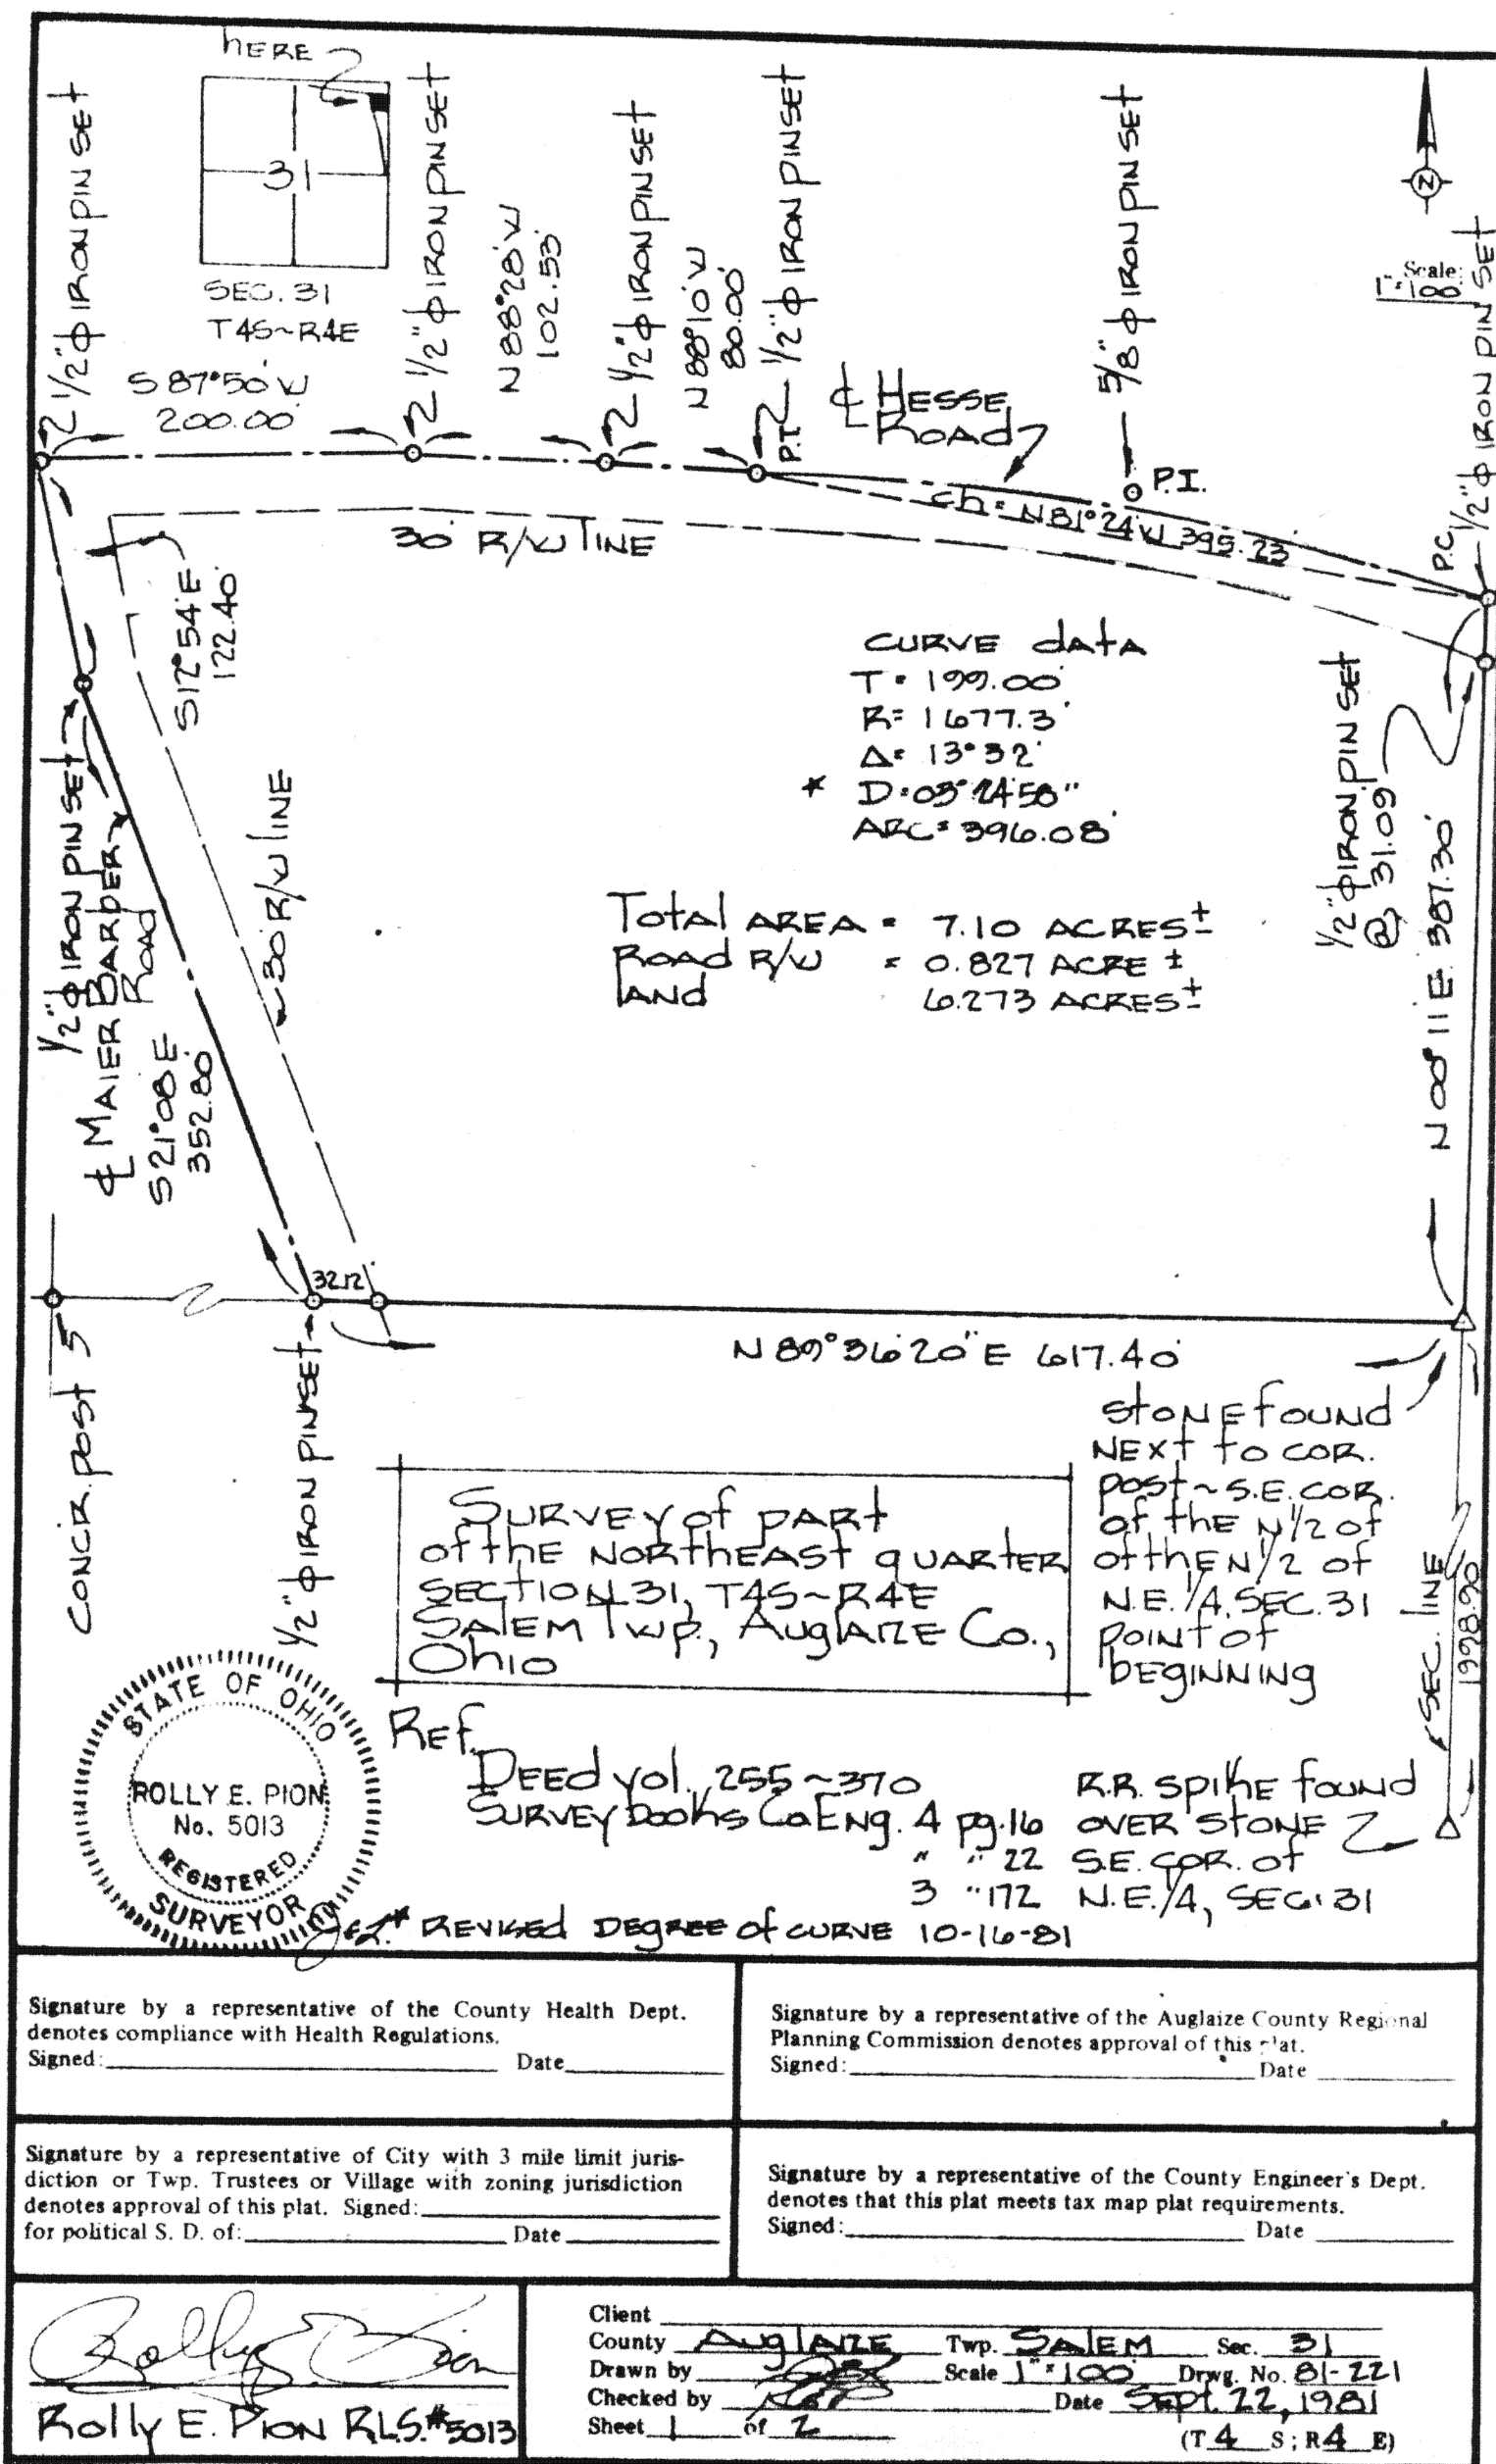 HERE
31
SEC. 31
T4S~R4E
1/2"ϕ IRON PIN SET
S 87°50' W
200.00'
1/2"ϕ IRON PIN SET
N 88°28' W
102.53'
1/2"ϕ IRON PIN SET
N 88°10' W
80.00'
1/2"ϕ IRON PIN SET
P.T.
℄ HESSE
ROAD
5/8"ϕ IRON PIN SET
P.I.
N
Scale:
1"=100'
1/2"ϕ IRON PIN SET
P.C.
ch = N 81°24' W 395.23'
30' R/W LINE
S 12°54' E
122.40'
CURVE data
T = 199.00'
R = 1677.3'
Δ = 13°32'
* D = 03°24'58"
ARC = 396.08'
1/2"ϕ IRON PIN SET
@ 31.09
N 00°11' E 387.30'
1/2"ϕ IRON PIN SET
℄ MAIER BARBER
Road
S 21°08' E
352.80'
30' R/W LINE
Total AREA = 7.10 ACRES ±
ROAD R/W = 0.827 ACRE ±
LAND 6.273 ACRES ±
32.12'
N 89°36'20" E 617.40'
CONCR. post 5
1/2"ϕ IRON PIN SET
STONE found
NEXT to COR.
post ~ S.E. COR.
of the N 1/2 of
of the N 1/2 of
N.E. 1/4, SEC. 31
POINT of
BEGINNING
SURVEY of PART
of the NORTHEAST QUARTER
SECTION 31, T4S~R4E
SALEM Twp., AUGLAIZE Co.,
OHIO
SEC. LINE
1998.90
STATE OF OHIO
ROLLY E. PION
No. 5013
REGISTERED
SURVEYOR
REF.
DEED vol. 255~370
SURVEY books Co ENG. 4 pg. 16
" " 22
3 " 172
R.R. SPIKE found
OVER STONE
S.E. COR. of
N.E. 1/4, SEC. 31
* REVISED DEGREE of CURVE 10-16-81
Signature by a representative of the County Health Dept.
denotes compliance with Health Regulations.
Signed: Date
Signature by a representative of the Auglaize County Regional
Planning Commission denotes approval of this plat.
Signed: Date
Signature by a representative of City with 3 mile limit juris-
diction or Twp. Trustees or Village with zoning jurisdiction
denotes approval of this plat. Signed:
for political S. D. of: Date
Signature by a representative of the County Engineer's Dept.
denotes that this plat meets tax map plat requirements.
Signed: Date
Rolly E. Pion
Rolly E. PION R.L.S. #5013
Client
County AUGLAIZE Twp. SALEM Sec. 31
Drawn by Scale 1"=100' Drwg. No. 81-221
Checked by Date Sept. 22, 1981
Sheet 1 of 2
(T 4 S ; R 4 E)